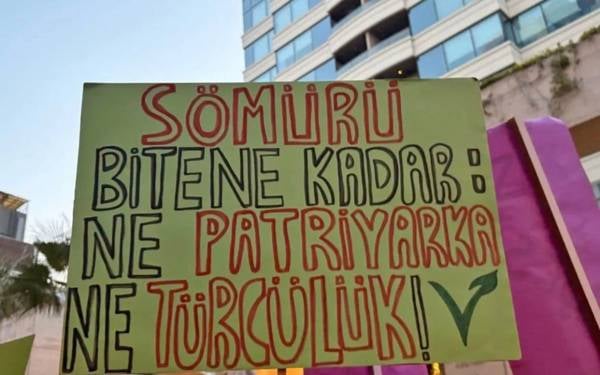 SÖMÜRÜ
BİTENE KADAR:
NE PATRİYARKA
NE TÜRCÜLÜK!